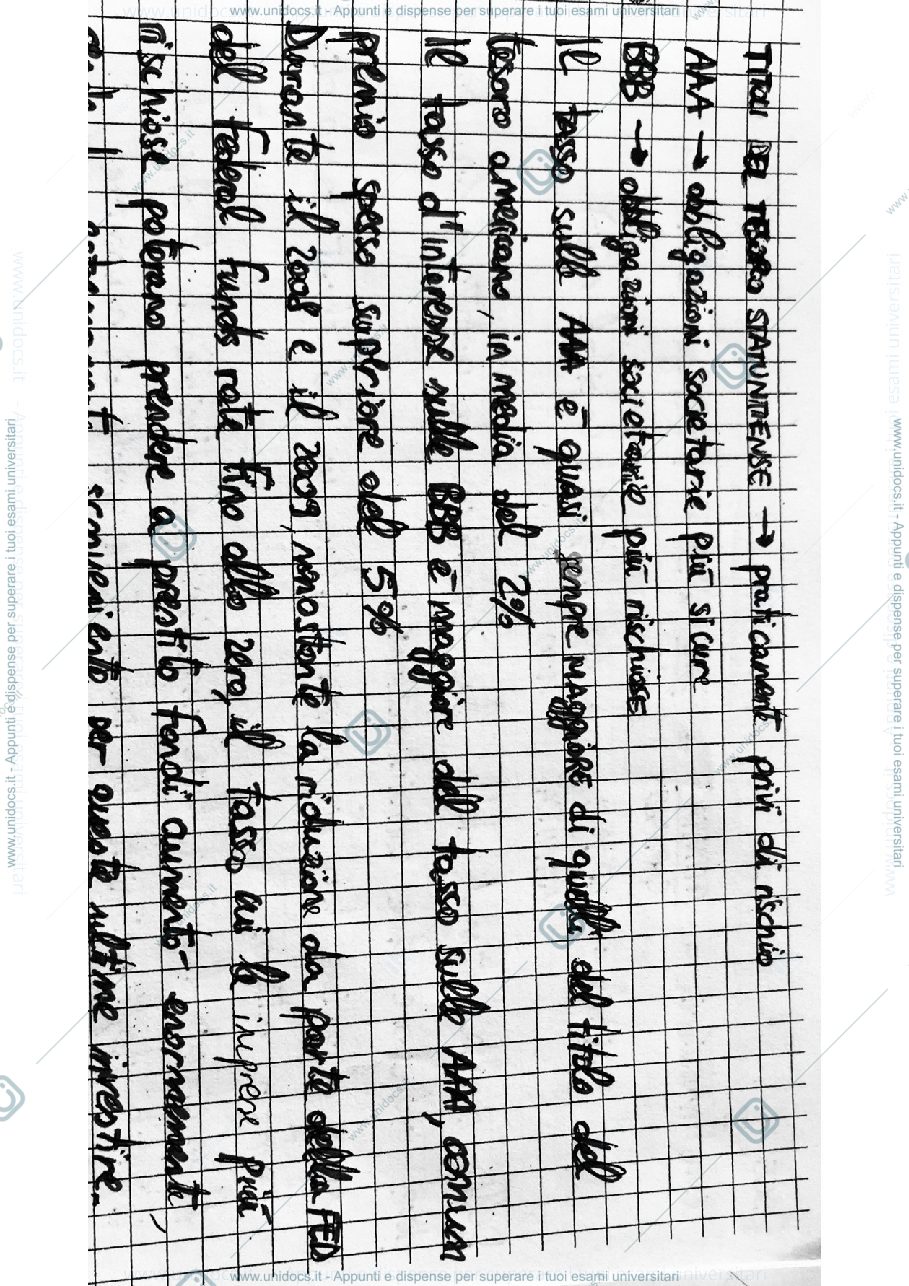 TITOLI DEL TESORO STATUNITENSE → praticamente privi di rischio
AAA → obbligazioni societarie più sicure
BBB → obbligazioni societarie più rischiose
Il tasso sulle AAA è quasi sempre maggiore di quello del titolo del
tesoro americano, in media del 2%
Il tasso d'interesse sulle BBB è maggiore del tasso sulle AAA, con un
premio spesso superiore del 5%
Durante il 2008 e il 2009, nonostante la riduzione da parte della FED
del federal funds rate fino allo zero, il tasso cui le imprese più
rischiose poterano prendere a prestito fondi aumentò enormemente,
per queste ultime investire.
www.unidocs.it - Appunti e dispense per superare i tuoi esami universitari
www.unidocs.it - Appunti e dispense per superare i tuoi esami universitari
www.unidocs.it - Appunti e dispense per superare i tuoi esami universitari
www.unidocs.it - Appunti e dispense per superare i tuoi esami universitari